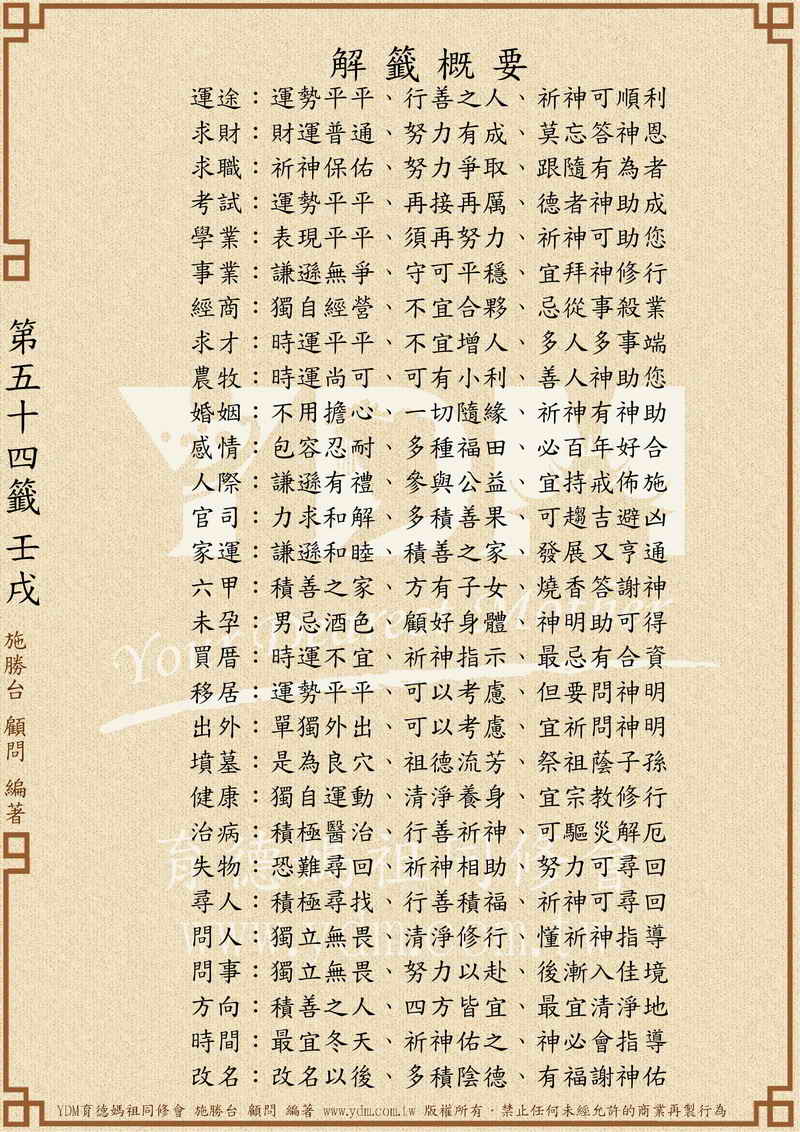 解籤概要
運途：運勢平平、行善之人、祈神可順利
求財：財運普通、努力有成、莫忘答神恩
求職：祈神保佑、努力爭取、跟隨有為者
考試：運勢平平、再接再厲、德者神助成
學業：表現平平、須再努力、祈神可助您
事業：謙遜無爭、守可平穩、宜拜神修行
經商：獨自經營、不宜合夥、忌從事殺業
求才：時運平平、不宜增人、多人多事端
農牧：時運尚可、可有小利、善人神助您
婚姻：不用擔心、一切隨緣、祈神有神助
感情：包容忍耐、多種福田、必百年好合
人際：謙遜有禮、參與公益、宜持戒佈施
官司：力求和解、多積善果、可趨吉避凶
家運：謙遜和睦、積善之家、發展又亨通
六甲：積善之家、方有子女、燒香答謝神
未孕：男忌酒色、顧好身體、神明助可得
買厝：時運不宜、祈神指示、最忌有合資
移居：運勢平平、可以考慮、但要問神明
出外：單獨外出、可以考慮、宜祈問神明
墳墓：是為良穴、祖德流芳、祭祖蔭子孫
健康：獨自運動、清淨養身、宜宗教修行
治病：積極醫治、行善祈神、可驅災解厄
失物：恐難尋回、祈神相助、努力可尋回
尋人：積極尋找、行善積福、祈神可尋回
問人：獨立無畏、清淨修行、懂祈神指導
問事：獨立無畏、努力以赴、後漸入佳境
方向：積善之人、四方皆宜、最宜清淨地
時間：最宜冬天、祈神佑之、神必會指導
改名：改名以後、多積陰德、有福謝神佑
第五十四籤 壬戌
施勝台 顧問 編著
YDM
育德媽祖同修會
YDM育德媽祖同修會 施勝台 顧問 編著 www.ydm.com.tw 版權所有．禁止任何未經允許的商業再製行為